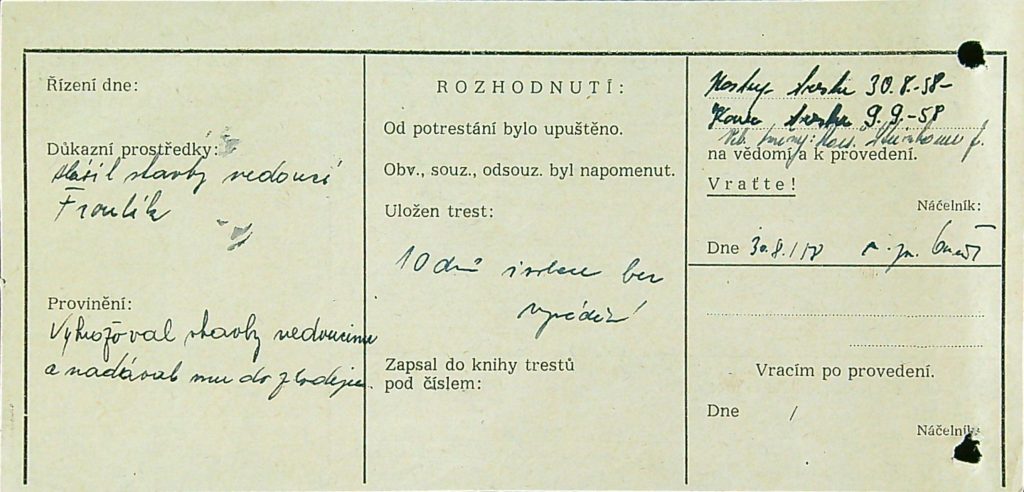 Řízení dne:
Důkazní prostředky:
hlásil stavby vedoucí
Froulík
Provinění:
Vyhrožoval stavby vedoucímu
a nadával mu do zlodějů.
ROZHODNUTÍ:
Od potrestání bylo upuštěno.
Obv., souz., odsouz. byl napomenut.
Uložen trest:
10 dnů isolace bez
vyvádění
Zapsal do knihy trestů
pod číslem:
trestu 30.8.-58-
Konec trestu 9.9.-58
na vědomí a k provedení.
Vraťte!
Náčelník:
Dne 30.8./58
Vracím po provedení.
Dne /
Náčelník: